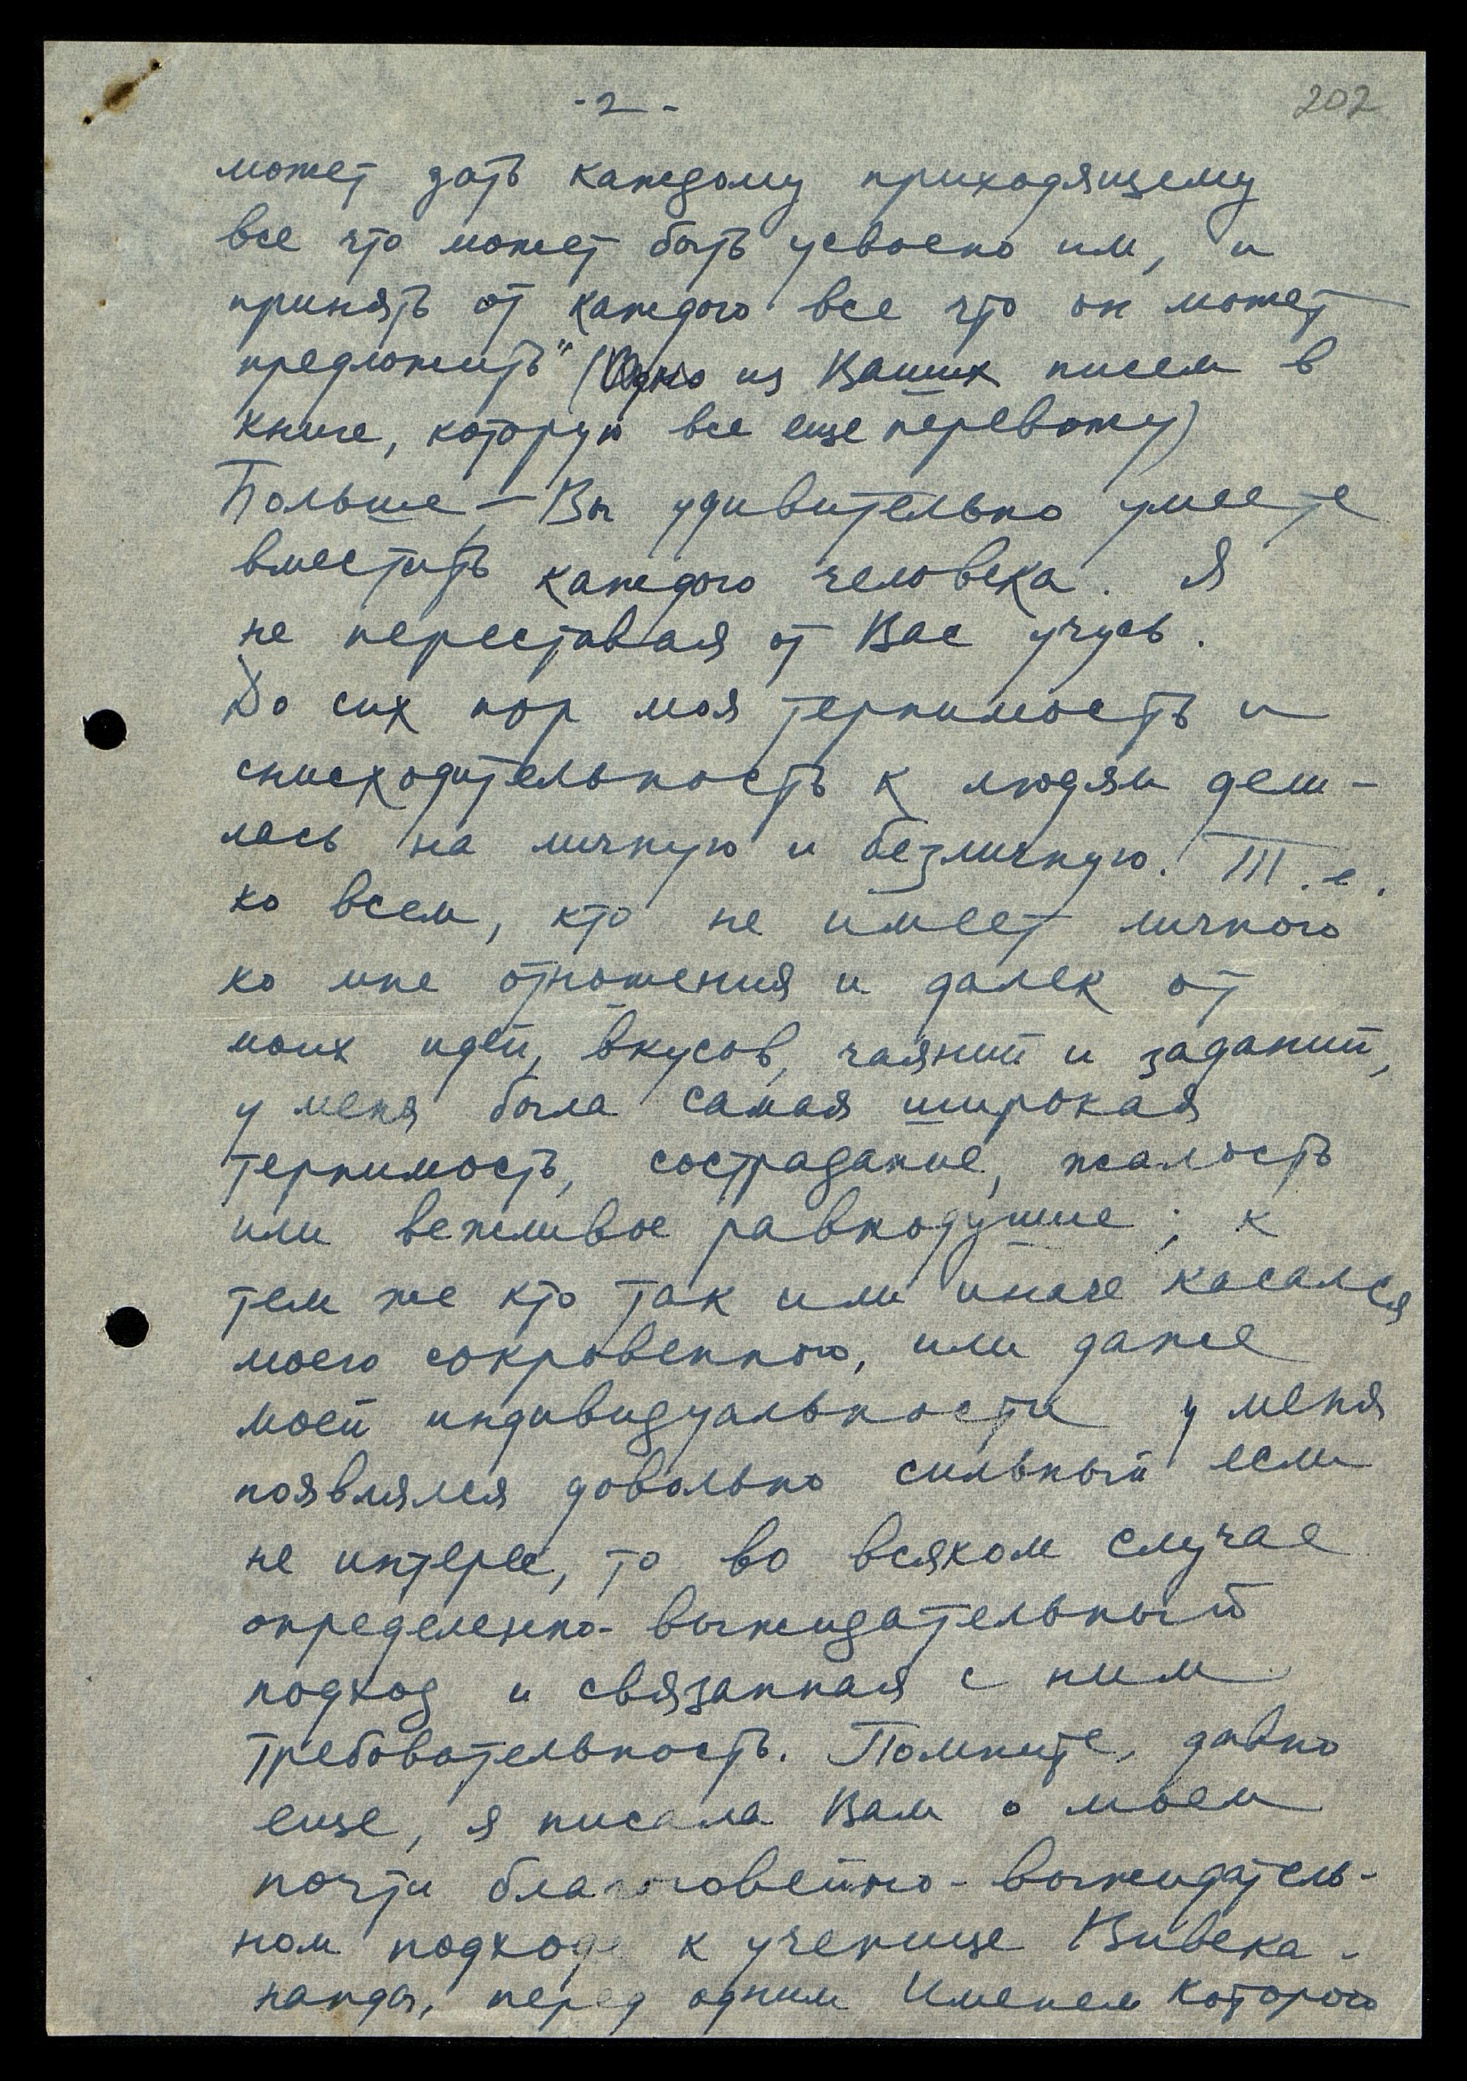 - 2 -
202
может дать каждому приходящему
все что может быть усвоено им, и
принять от каждого все что он может
предложить" (Одно из Ваших писем в
книге, которую все еще перевожу)
Больше – Вы удивительно умеете
вместить каждого человека. Я
не переставая от Вас учусь.
До сих пор моя терпимость и
снисходительность к людям дели-
лась на личную и безличную. Т.е.
ко всем, кто не имеет личного
ко мне отношения и далек от
моих идей, вкусов, чаяний и заданий,
у меня была самая широкая
терпимость, сострадание, жалость
или вежливое равнодушие; к
тем же кто так или иначе касался
моего сокровенного, или даже
моей индивидуальности у меня
появлялся довольно сильный если
не интерес, то во всяком случае
определенно-выжидательный
подход и связанная с ним
требовательность. Помните, давно
еще, я писала Вам о моем
почти благоговейно-выжидатель-
ном подходе к ученице Вивека-
нанды, перед одним Именем Которого